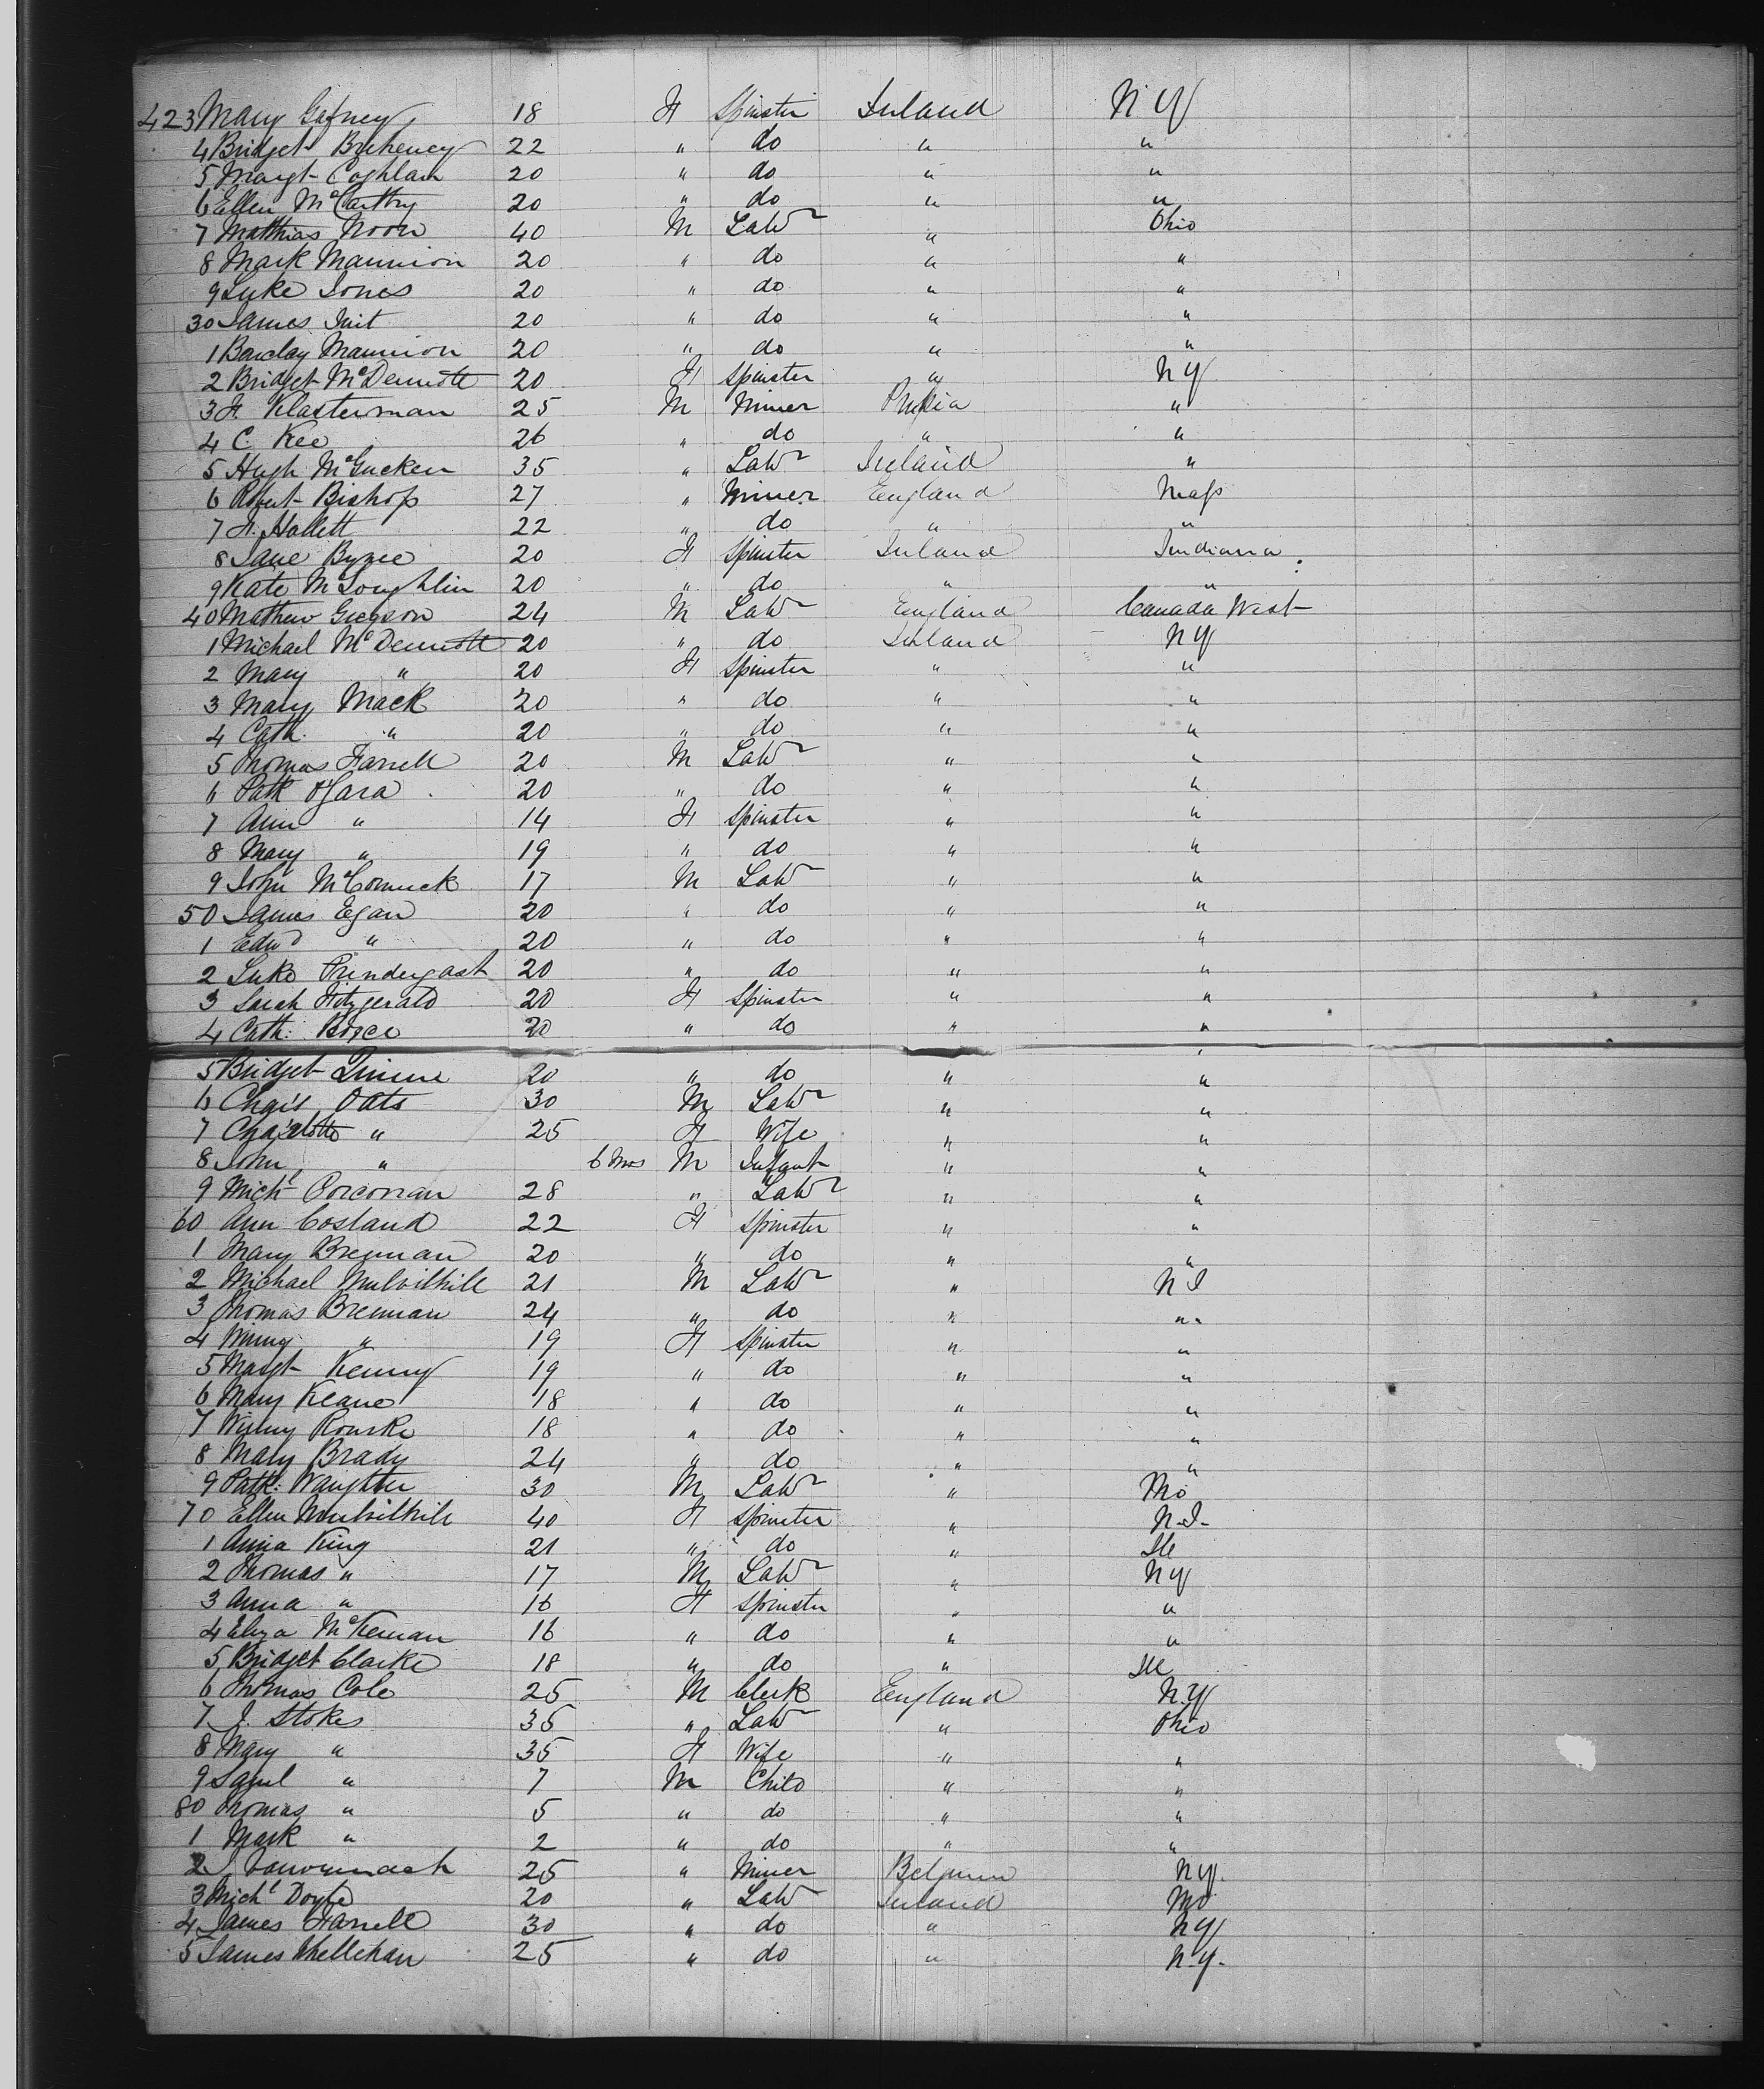 423 Mary Gafney 18 F Spinster Ireland N Y
4 Bridget Breheney 22 " do " "
5 Margt Coghlan 20 " do " "
6 Ellen McCarthy 20 " do " "
7 Matthias Noon 40 M Labr " Ohio
8 Mark Mannion 20 " do " "
9 Luke Jones 20 " do " "
30 James Tait 20 " do " "
1 Barclay Mannion 20 " do " "
2 Bridget McDermott 20 F Spinster " N Y
3 F. Klasterman 25 M Miner Prussia "
4 C. Kee 26 " do " "
5 Hugh McGucken 35 " Labr Ireland "
6 Robert Bishop 27 " Miner England Mass
7 F. Hallett 22 " do " "
8 Jane Byrne 20 F Spinster Ireland Indiana
9 Kate McLoughlin 20 " do " "
40 Mathew Gregson 24 M Labr England Canada West
1 Michael McDermott 20 " do Ireland N Y
2 Mary " 20 F Spinster " "
3 Mary Mack 20 " do " "
4 Cath. " 20 " do " "
5 Thomas Farrell 20 M Labr " "
6 Patk O'Gara 20 " do " "
7 Ann " 14 F Spinster " "
8 Mary " 19 " do " "
9 John McCormick 17 M Labr " "
50 James Egan 20 " do " "
1 Edwd " 20 " do " "
2 Luke Prendergast 20 " do " "
3 Sarah Fitzgerald 20 F Spinster " "
4 Cath: 20 " do " "
5 Bridget 20 " do " "
6 Chas Oats 30 M Labr " "
7 Charlotte " 25 F Wife " "
8 John " 6 Mos M Infant " "
9 Michl Corcoran 28 " Labr " "
60 Ann Costand 22 F Spinster " "
1 Mary Brennan 20 " do " "
2 Michael Mulvilhill 21 M Labr " N J
3 Thomas Brennan 24 " do " "
4 Winny " 19 F Spinster " "
5 Margt Kenny 19 " do " "
6 Mary Keane 18 " do " "
7 Winny Rourke 18 " do " "
8 Mary Brady 24 " do " "
9 Patk: Naughter 30 M Labr " Mo
70 Ellen Mulvilhill 40 F Spinster " N. J.
1 Anna King 21 " do " Ill
2 Thomas " 17 M Labr " N Y
3 Anna " 16 F Spinster " "
4 Eliza McKernan 16 " do " "
5 Bridget Clarke 18 " do " Ill
6 Thomas Cole 25 M Clerk England N. Y
7 J. Stokes 35 " Labr " Ohio
8 Mary " 35 F Wife " "
9 Saml " 7 M Child " "
80 Thomas " 5 " do " "
1 Mark " 2 " do " "
2 J. 25 " Miner Belgium N Y.
3 Michl Doyle 20 " Labr Ireland Mo
4 James Farrell 30 " do " N Y
5 James Whellehan 25 " do " N. Y.